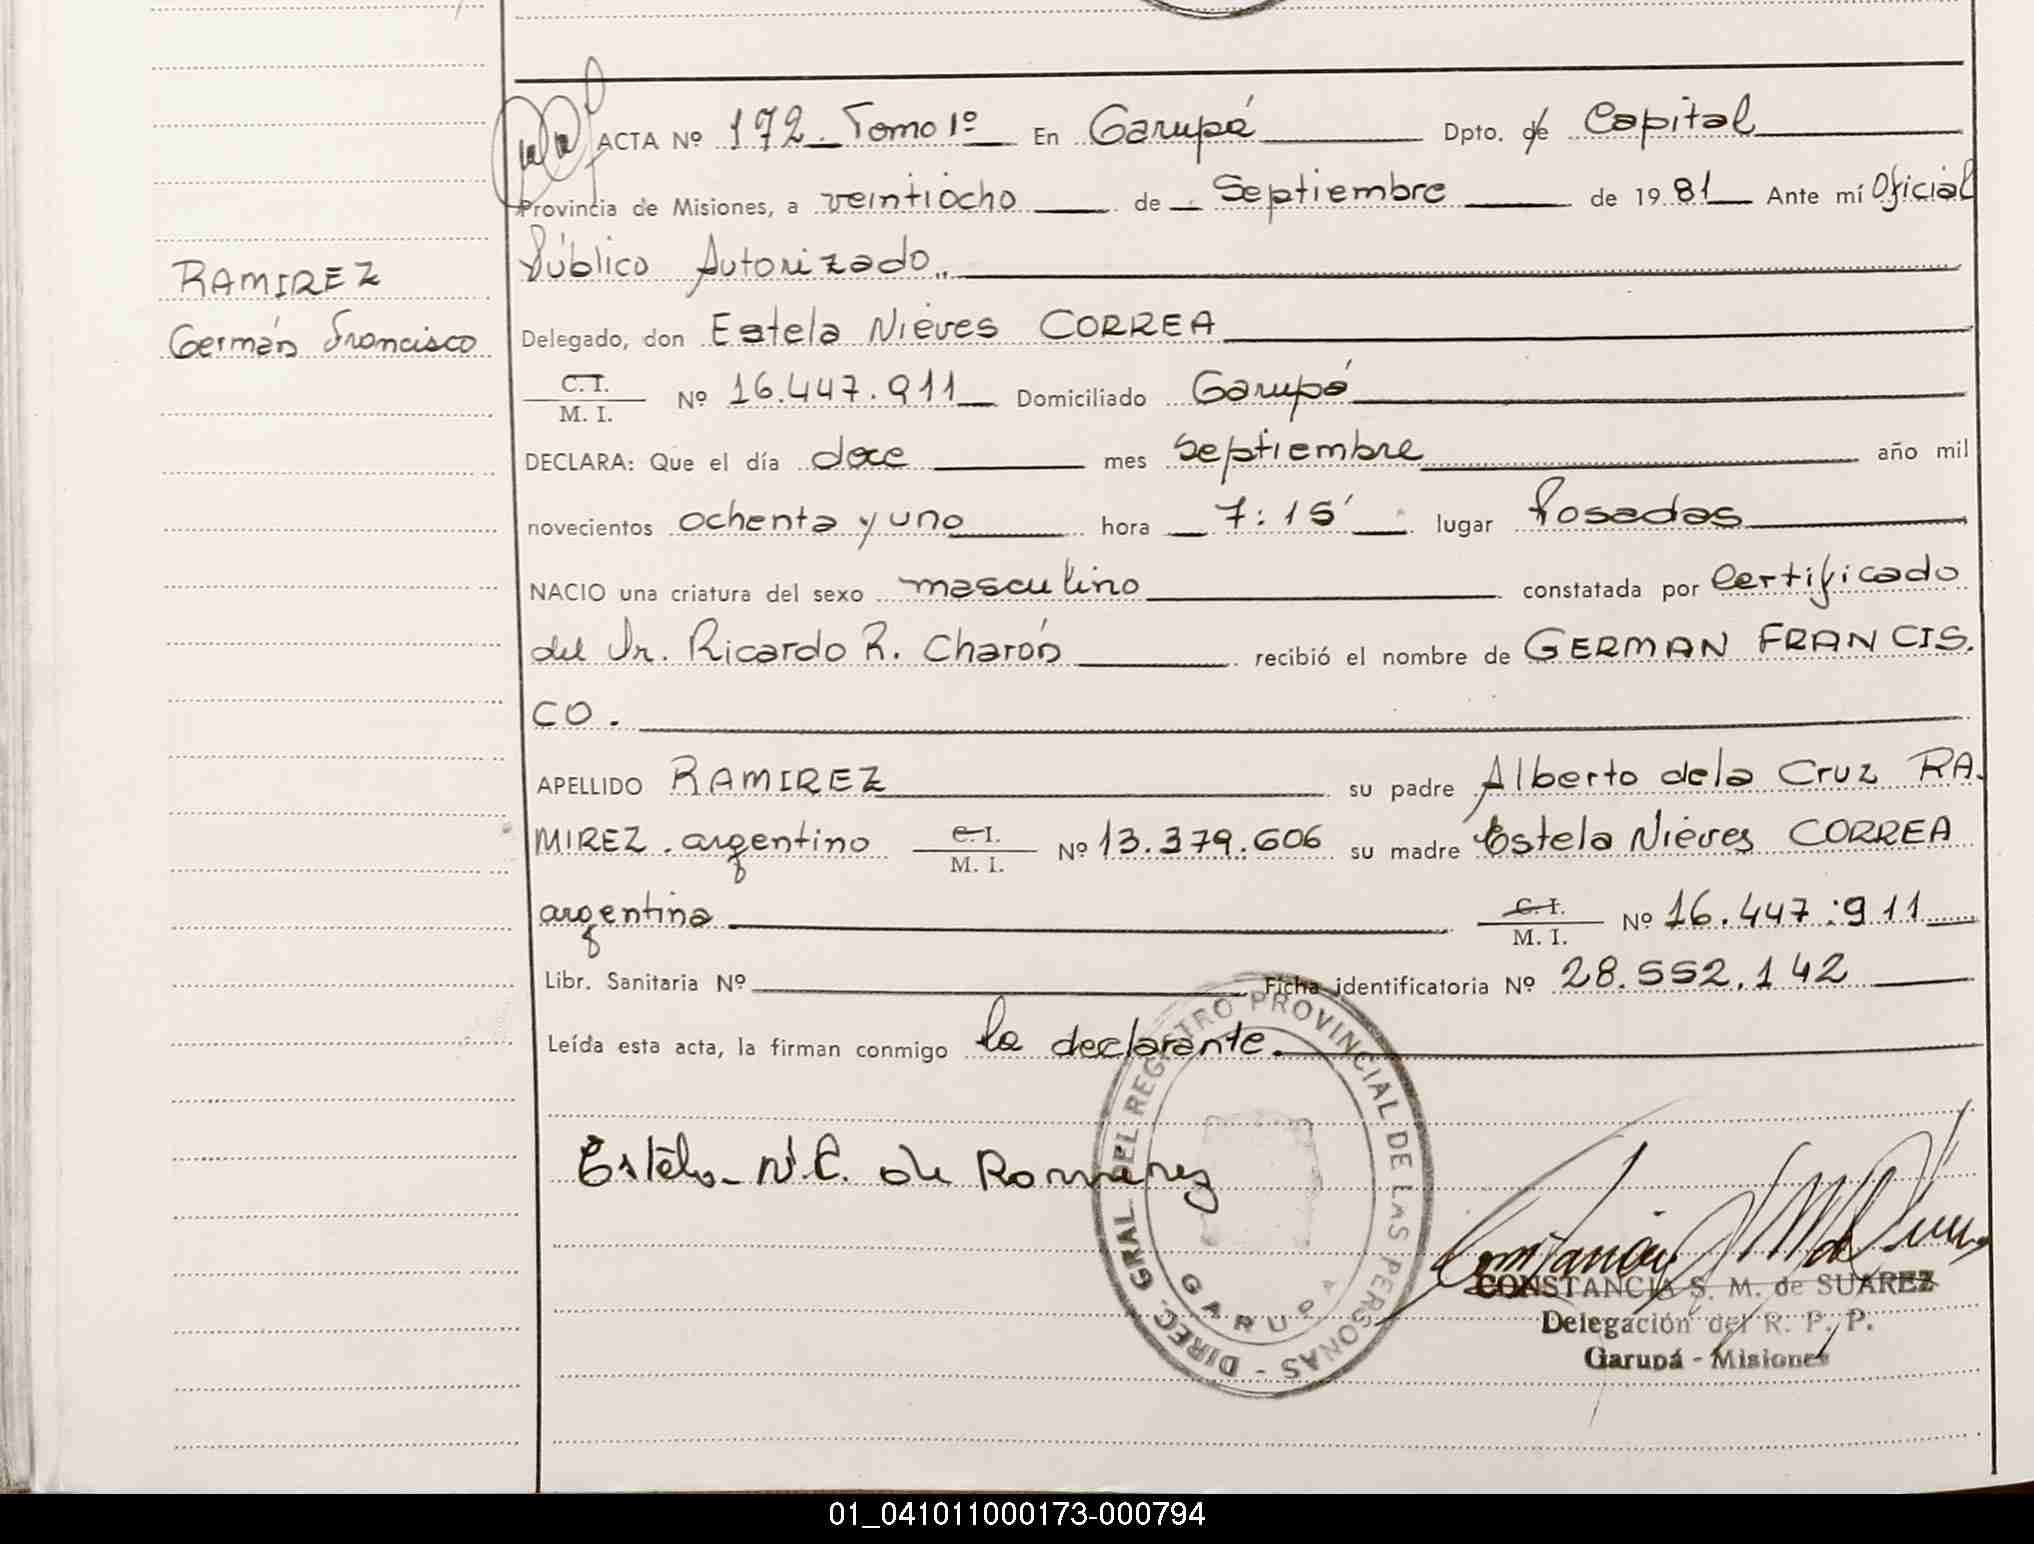 ACTA Nº 172. Tomo 1º En Garupá Dpto. de Capital
Provincia de Misiones, a veintiocho de Septiembre de 1981 Ante mí Oficial
Público Autorizado
RAMIREZ
Germán Francisco
Delegado, don Estela Nieves CORREA
C. I.
M. I. Nº 16.447.911 Domiciliado Garupá
DECLARA: Que el día doce mes Septiembre año mil
novecientos ochenta y uno hora 7:15' lugar Posadas
NACIO una criatura del sexo masculino constatada por Certificado
del Dr. Ricardo R. Charón recibió el nombre de GERMAN FRANCIS.
CO.
APELLIDO RAMIREZ su padre Alberto dela Cruz RA.
MIREZ. argentino C. I. M. I. Nº 13.379.606 su madre Estela Nieves CORREA
argentina C. I. M. I. Nº 16.447.911
Libr. Sanitaria Nº Ficha identificatoria Nº 28.552.142
Leída esta acta, la firman conmigo la declarante.
Estela N. C. de Ramirez
DIREC. GRAL DEL REGISTRO PROVINCIAL DE LAS PERSONAS -
GARUPA
CONSTANCIA S. M. de SUAREZ
Delegación del R. P. P.
Garupá - Misiones
01_041011000173-000794